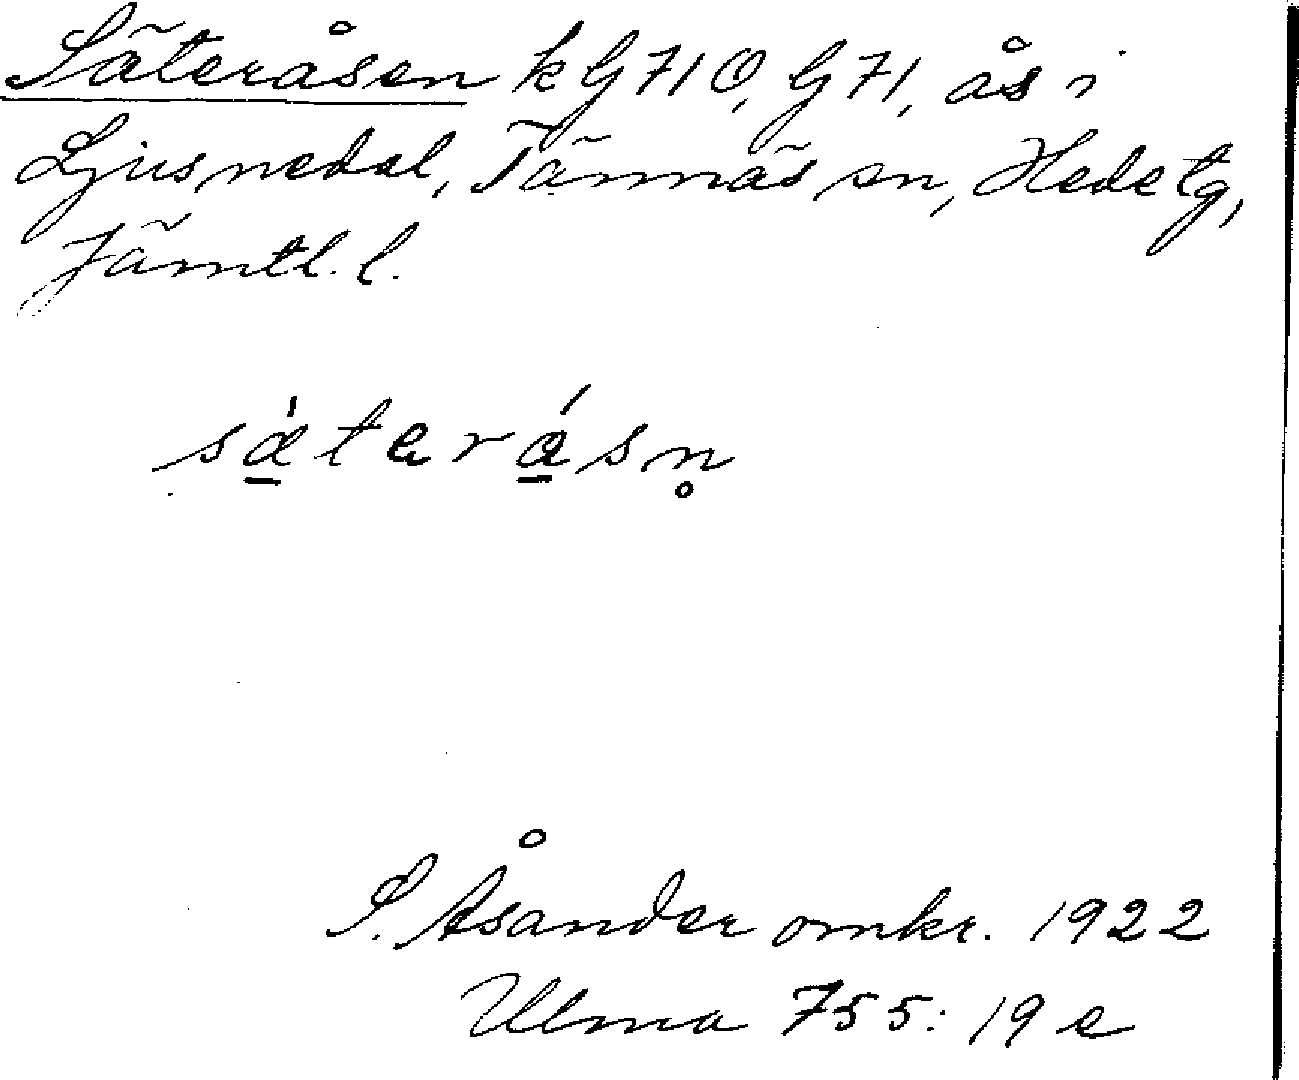 Säteråsen k G 71 O, G 71, ås i
Ljusnedal, Tännäs sn, Hede tg,
Jämtl. l.
sæ̲̀terá̲sn̥
S. Åsander omkr. 1922
Ulma 755: 19 e